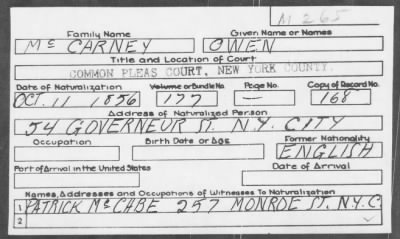 M 265
Family Name Given Name or Names
Mc CARNEY OWEN
Title and Location of Court
COMMON PLEAS COURT, NEW YORK COUNTY.
Date of Naturalization Volume or Bundle No. Page No. Copy of Record No.
OCT. 11 1856 177 — 168
Address of Naturalized Person
54 GOVERNEUR ST. N.Y. CITY
Occupation Birth Date or Age Former Nationality
ENGLISH
Port of Arrival in the United States Date of Arrival
Names, Addresses and Occupations of Witnesses To Naturalization
1 PATRICK McCABE 257 MONROE ST. N.Y.C.
2